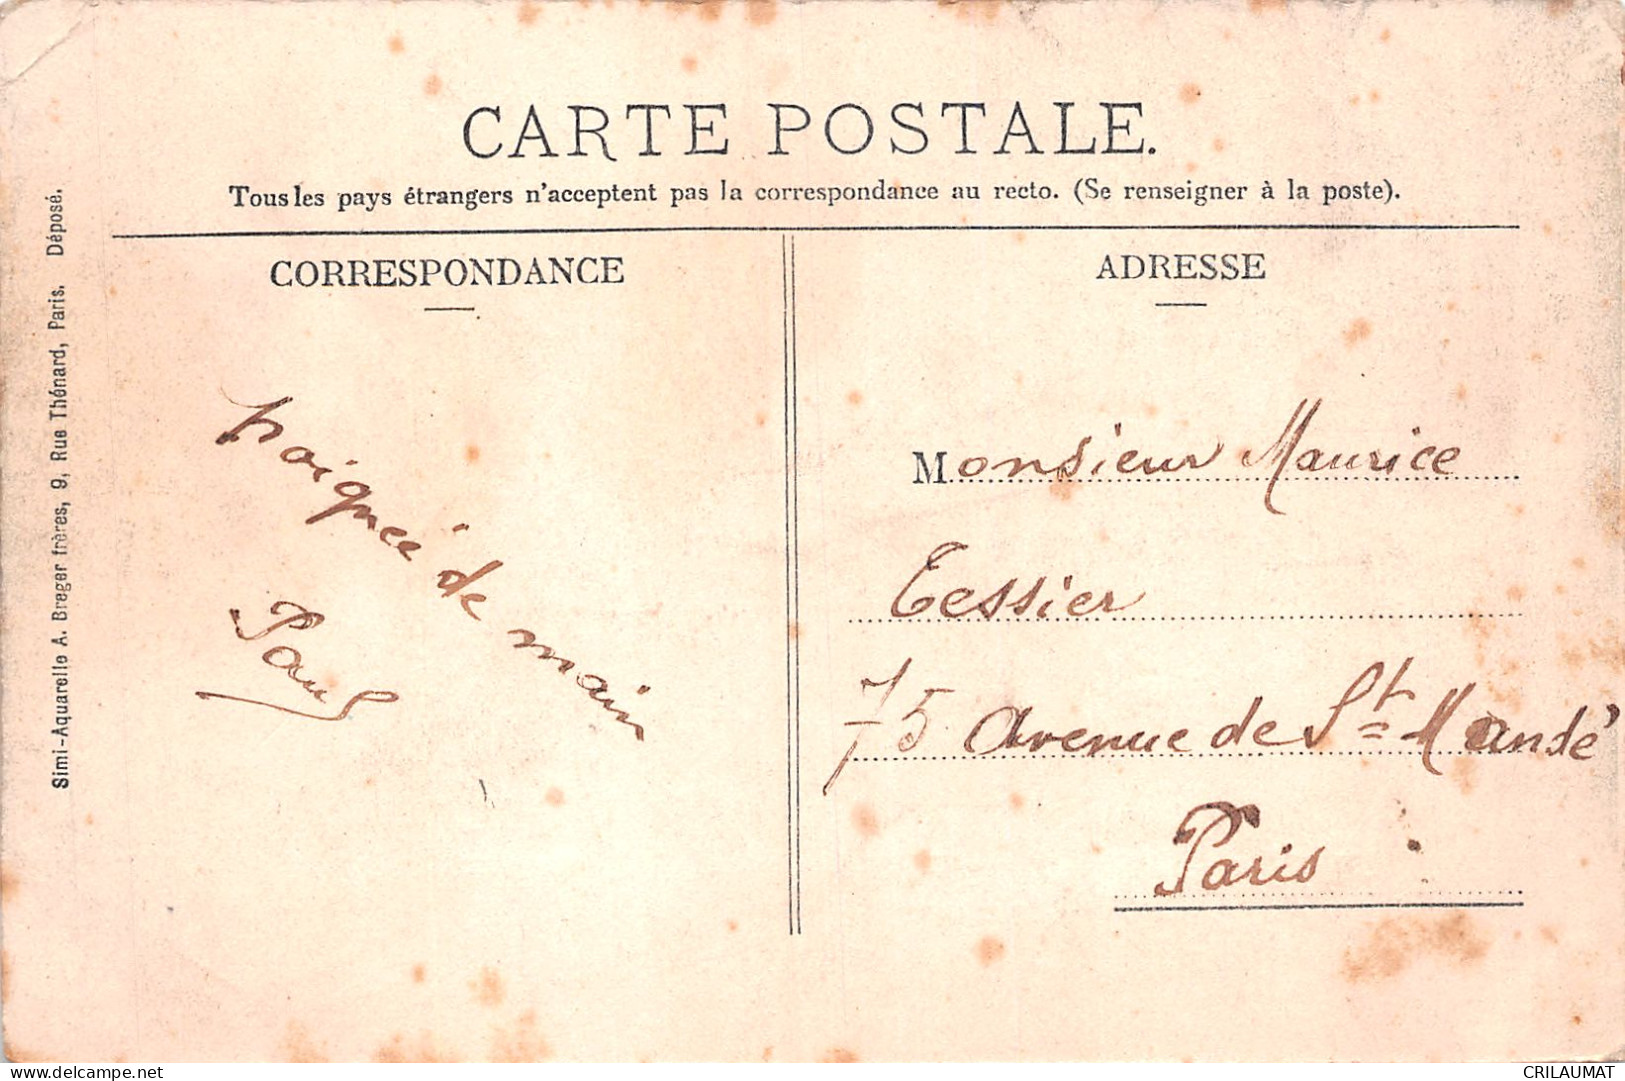 CARTE POSTALE.
Tous les pays étrangers n'acceptent pas la correspondance au recto. (Se renseigner à la poste).
CORRESPONDANCE
poignée de main
Paul
ADRESSE
Monsieur Maurice
Tessier
75 Avenue de St Mandé
Paris
Simi-Aquarelle A. Breger frères, 9, Rue Thénard, Paris. Déposé.
delcampe.net
CRILAUMAT